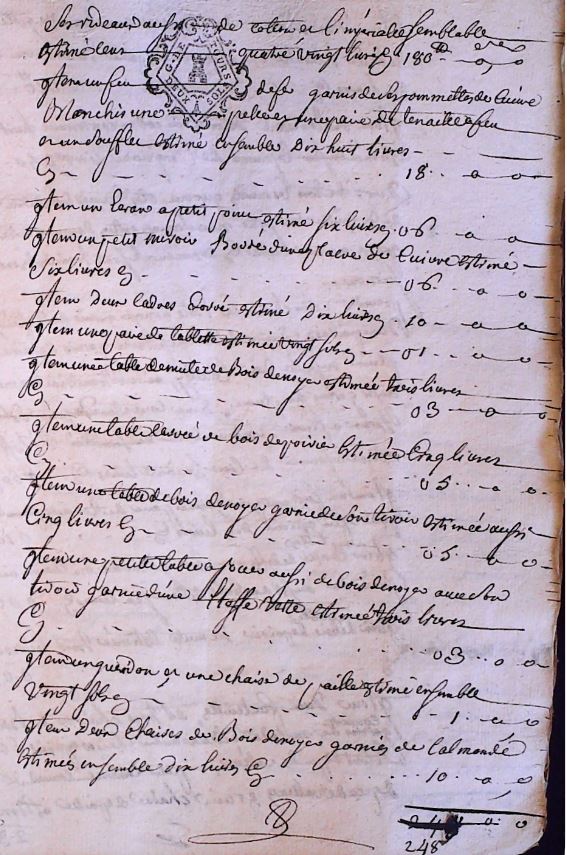 Ses rideaux aussy de coton et l'imperialle semblable
estimé le tout quatre vingt livres 180ᵗᵗ - o - o
Item un feu de fer garnis de ses pommettes de Cuivre
Blanchis une pelle et une paire de tenaille a feu
et un soufflet estimé ensemble Dix huit livres
Cy - - - 18 - o - o
Item un Ecran a petit point estimé six livres 06 - o - o
Item un petit miroir Bordé d'une placque de Cuivre estimé
Six livres Cy - - - 06 - o - o
Item Deux Cadres Dorés estimé Dix livres 10 - o - o
Item une paire de tablette estimée vingt sols 01 - o - o
Item une table de nuit de Bois de noyer estimée trois livres
Cy - - - 03 - o - o
Item une table de bois de poirié Estimée Cinq livres
Cy - - - 05 - o - o
Item une table de bois de noyer garnie de son tiroir estimée aussi
Cinq livres Cy - - - 05 - o - o
Item une petite table a jouer aussi de bois de noyer avec son
tiroir garnie d'une Etoffe verte estimée trois livres
Cy - - - 03 - o - o
Item un gueridon et une chaise de paille estimé ensemble
Vingt sols Cy - - - 1 - o - o
Item Deux Chaises de Bois de noyer garnies de Calmande
estimées ensemble dix livres Cy - - - 10 - o - o
248
GG. DE TOURS
DEUX SOLS